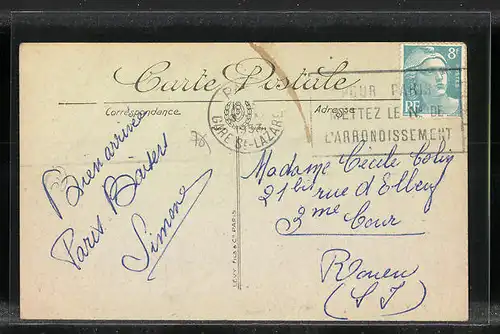 Carte Postale
Correspondance
Adresse
8f
RF
PARIS
GARE St-LAZARE
POUR PARIS
METTEZ LE N° DE
L'ARRONDISSEMENT
Bien arrivée
Paris. Baisers
Simone
LEVY FILS & Cie PARIS
Madame Cécile Colin
21 bis rue d'Elbeuf
3me Cour
Rouen
(S I)